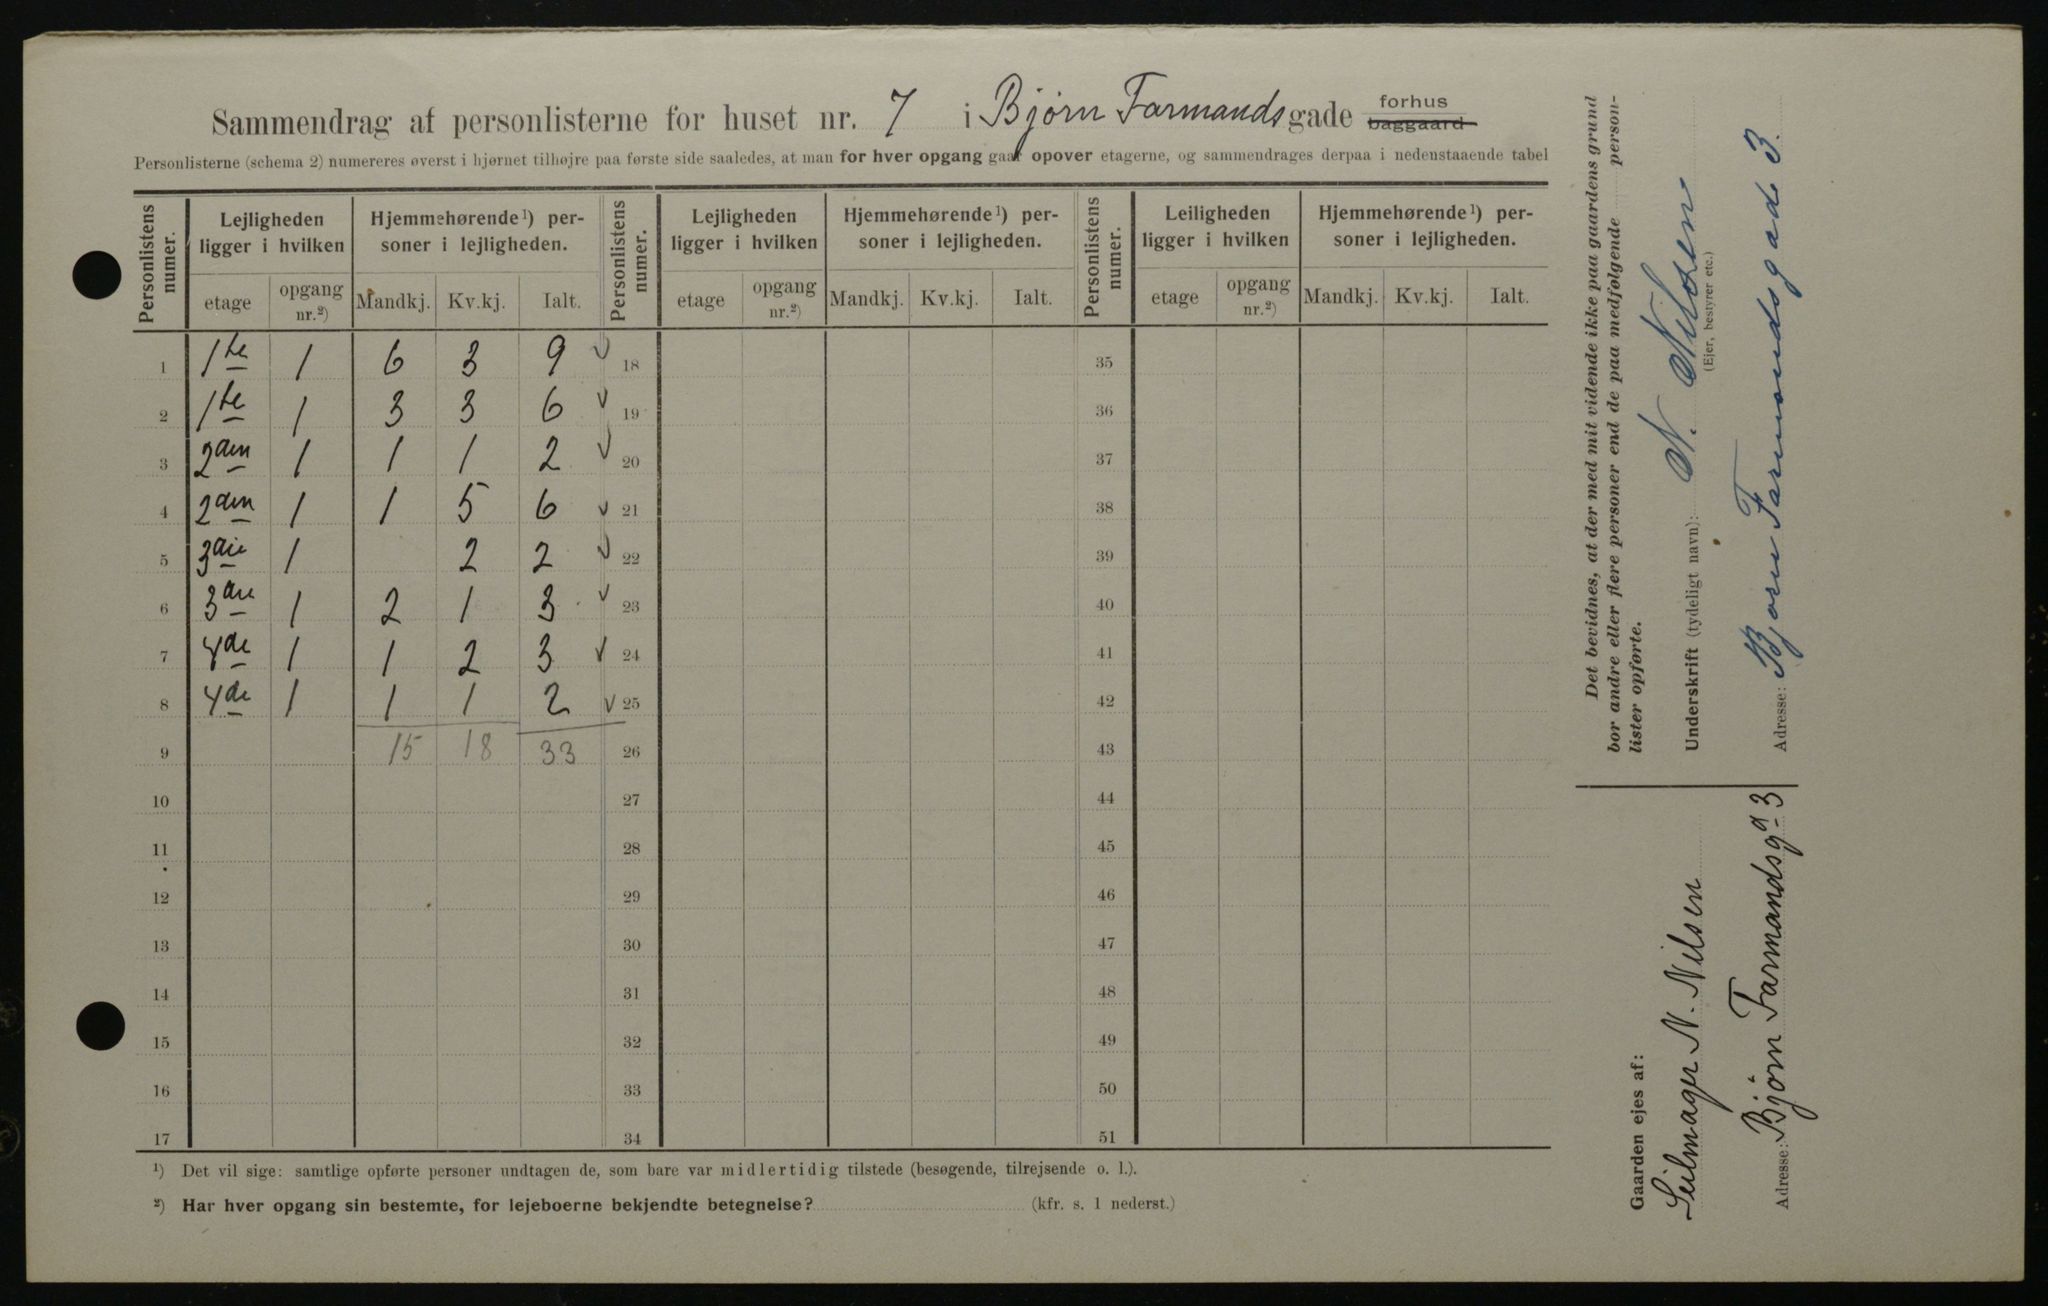 Sammendrag af personlisterne for huset nr. 7 i Bjørn Farmands gade forhus baggaard
Personlisterne (schema 2) numereres øverst i hjørnet tilhøjre paa første side saaledes, at man for hver opgang gaar opover etagerne, og sammendrages derpaa i nedenstaaende tabel
Personlistens numer. Lejligheden ligger i hvilken Hjemmehørende¹) personer i lejligheden. Personlistens numer. Lejligheden ligger i hvilken Hjemmehørende¹) personer i lejligheden. Personlistens numer. Leiligheden ligger i hvilken Hjemmehørende¹) personer i lejligheden.
etage opgang nr.²) Mandkj. Kv.kj. Ialt. etage opgang nr.²) Mandkj. Kv.kj. Ialt. etage opgang nr.²) Mandkj. Kv.kj. Ialt.
1 1te 1 6 3 9 √ 18 35
2 1te 1 3 3 6 √ 19 36
3 2den 1 1 1 2 √ 20 37
4 2den 1 1 5 6 √ 21 38
5 3die 1 2 2 √ 22 39
6 3die 1 2 1 3 √ 23 40
7 4de 1 1 2 3 √ 24 41
8 4de 1 1 1 2 √ 25 42
9 15 18 33 26 43
10 27 44
11 28 45
12 29 46
13 30 47
14 31 48
15 32 49
16 33 50
17 34 51
¹) Det vil sige: samtlige opførte personer undtagen de, som bare var midlertidig tilstede (besøgende, tilrejsende o. l.).
²) Har hver opgang sin bestemte, for lejeboerne bekjendte betegnelse? (kfr. s. 1 nederst.)
Det bevidnes, at der med mit vidende ikke paa gaardens grund
bor andre eller flere personer end de paa medfølgende personlister opførte.
Underskrift (tydeligt navn): N. Nilsen
(Ejer, bestyrer etc.)
Adresse: Bjørn Farmandsgade 3.
Gaarden ejes af:
Seilmager N. Nilsen
Adresse: Bjørn Farmandsgd 3